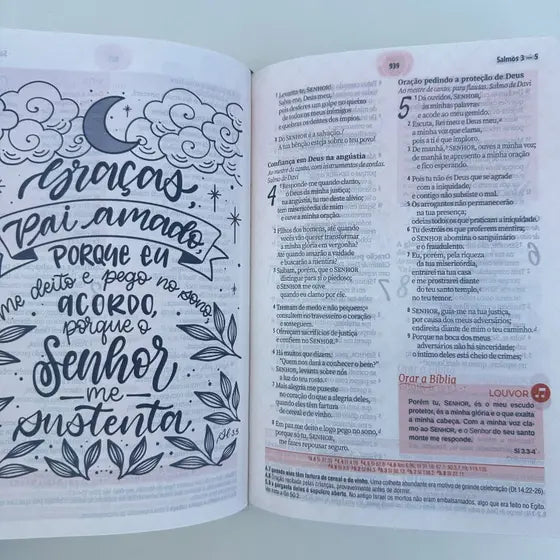 Graças,
Pai amado,
PORQUE EU
me deito e pego no sono
ACORDO,
porque o
Senhor
me
sustenta.
Sl 3.5
939
Salmos 3 — 5
7 Levanta-te, SENHOR!
Salva-me, Deus meu,
pois desferes um golpe no queixo
de todos os meus inimigos
e quebras os dentes dos ímpios.
8 Do SENHOR é a salvação!
A tua bênção esteja sobre o teu povo!
Confiança em Deus na angústia
Ao mestre de canto, com instrumentos de cordas.
Salmo de Davi
4
1 Responde-me quando clamo,
ó Deus da minha justiça;
na angústia, tu me deste alívio;
tem misericórdia de mim
e ouve a minha oração.
2 Filhos dos homens, até quando
vocês vão querer transformar
a minha glória em vergonha?
Até quando amarão a vaidade
e buscarão a mentira?
3 Saibam, porém, que o SENHOR
distingue para si o piedoso;
o SENHOR me ouve
quando eu clamo por ele.
4 Tremam de medo e não pequem;
consultem no travesseiro o coração
e sosseguem.
5 Ofereçam sacrifícios de justiça
e confiem no SENHOR.
6 Há muitos que dizem:
"Quem nos dará a conhecer o bem?"
SENHOR, levanta sobre nós
a luz do teu rosto.
7 Mais alegria puseste
no coração do que a alegria deles,
quando eles têm fartura
de cereal e de vinho.
8 Em paz me deito e logo pego no sono,
porque só tu, SENHOR,
me fazes repousar seguro.
Oração pedindo a proteção de Deus
Ao mestre de canto, para flautas. Salmo de Davi
5
1 Dá ouvidos, SENHOR,
às minhas palavras
e acode ao meu gemido.
2 Escuta, Rei meu e Deus meu,
a minha voz que clama,
pois a ti é que imploro.
3 De manhã, SENHOR, ouves a minha voz;
de manhã te apresento a minha oração
e fico esperando.
4 Pois tu não és Deus que se agrade
com a iniquidade,
e contigo não subsiste o mal.
5 Os arrogantes não permanecerão
na tua presença;
odeias todos os que praticam a iniquidade.
6 Tu destróis os que proferem mentira;
o SENHOR abomina o sanguinário
e o fraudulento.
7 Eu, porém, pela riqueza
da tua misericórdia,
entrarei na tua casa
e me prostrarei diante
do teu santo templo,
no teu temor.
8 SENHOR, guia-me na tua justiça,
por causa dos meus adversários;
endireita diante de mim o teu caminho.
9 Porque na boca dos meus
adversários não há sinceridade;
o íntimo deles está cheio de crimes;
Orar a Bíblia
LOUVOR
Porém tu, SENHOR, és o meu escudo
protetor, és a minha glória e o que exalta
a minha cabeça. Com a minha voz cla-
mo ao SENHOR, e o Senhor do seu santo
monte me responde.
Sl 3.3-4
4.7 quando eles têm fartura de cereal e de vinho. Uma colheita abundante era motivo de grande celebração (Dt 14.22-26).